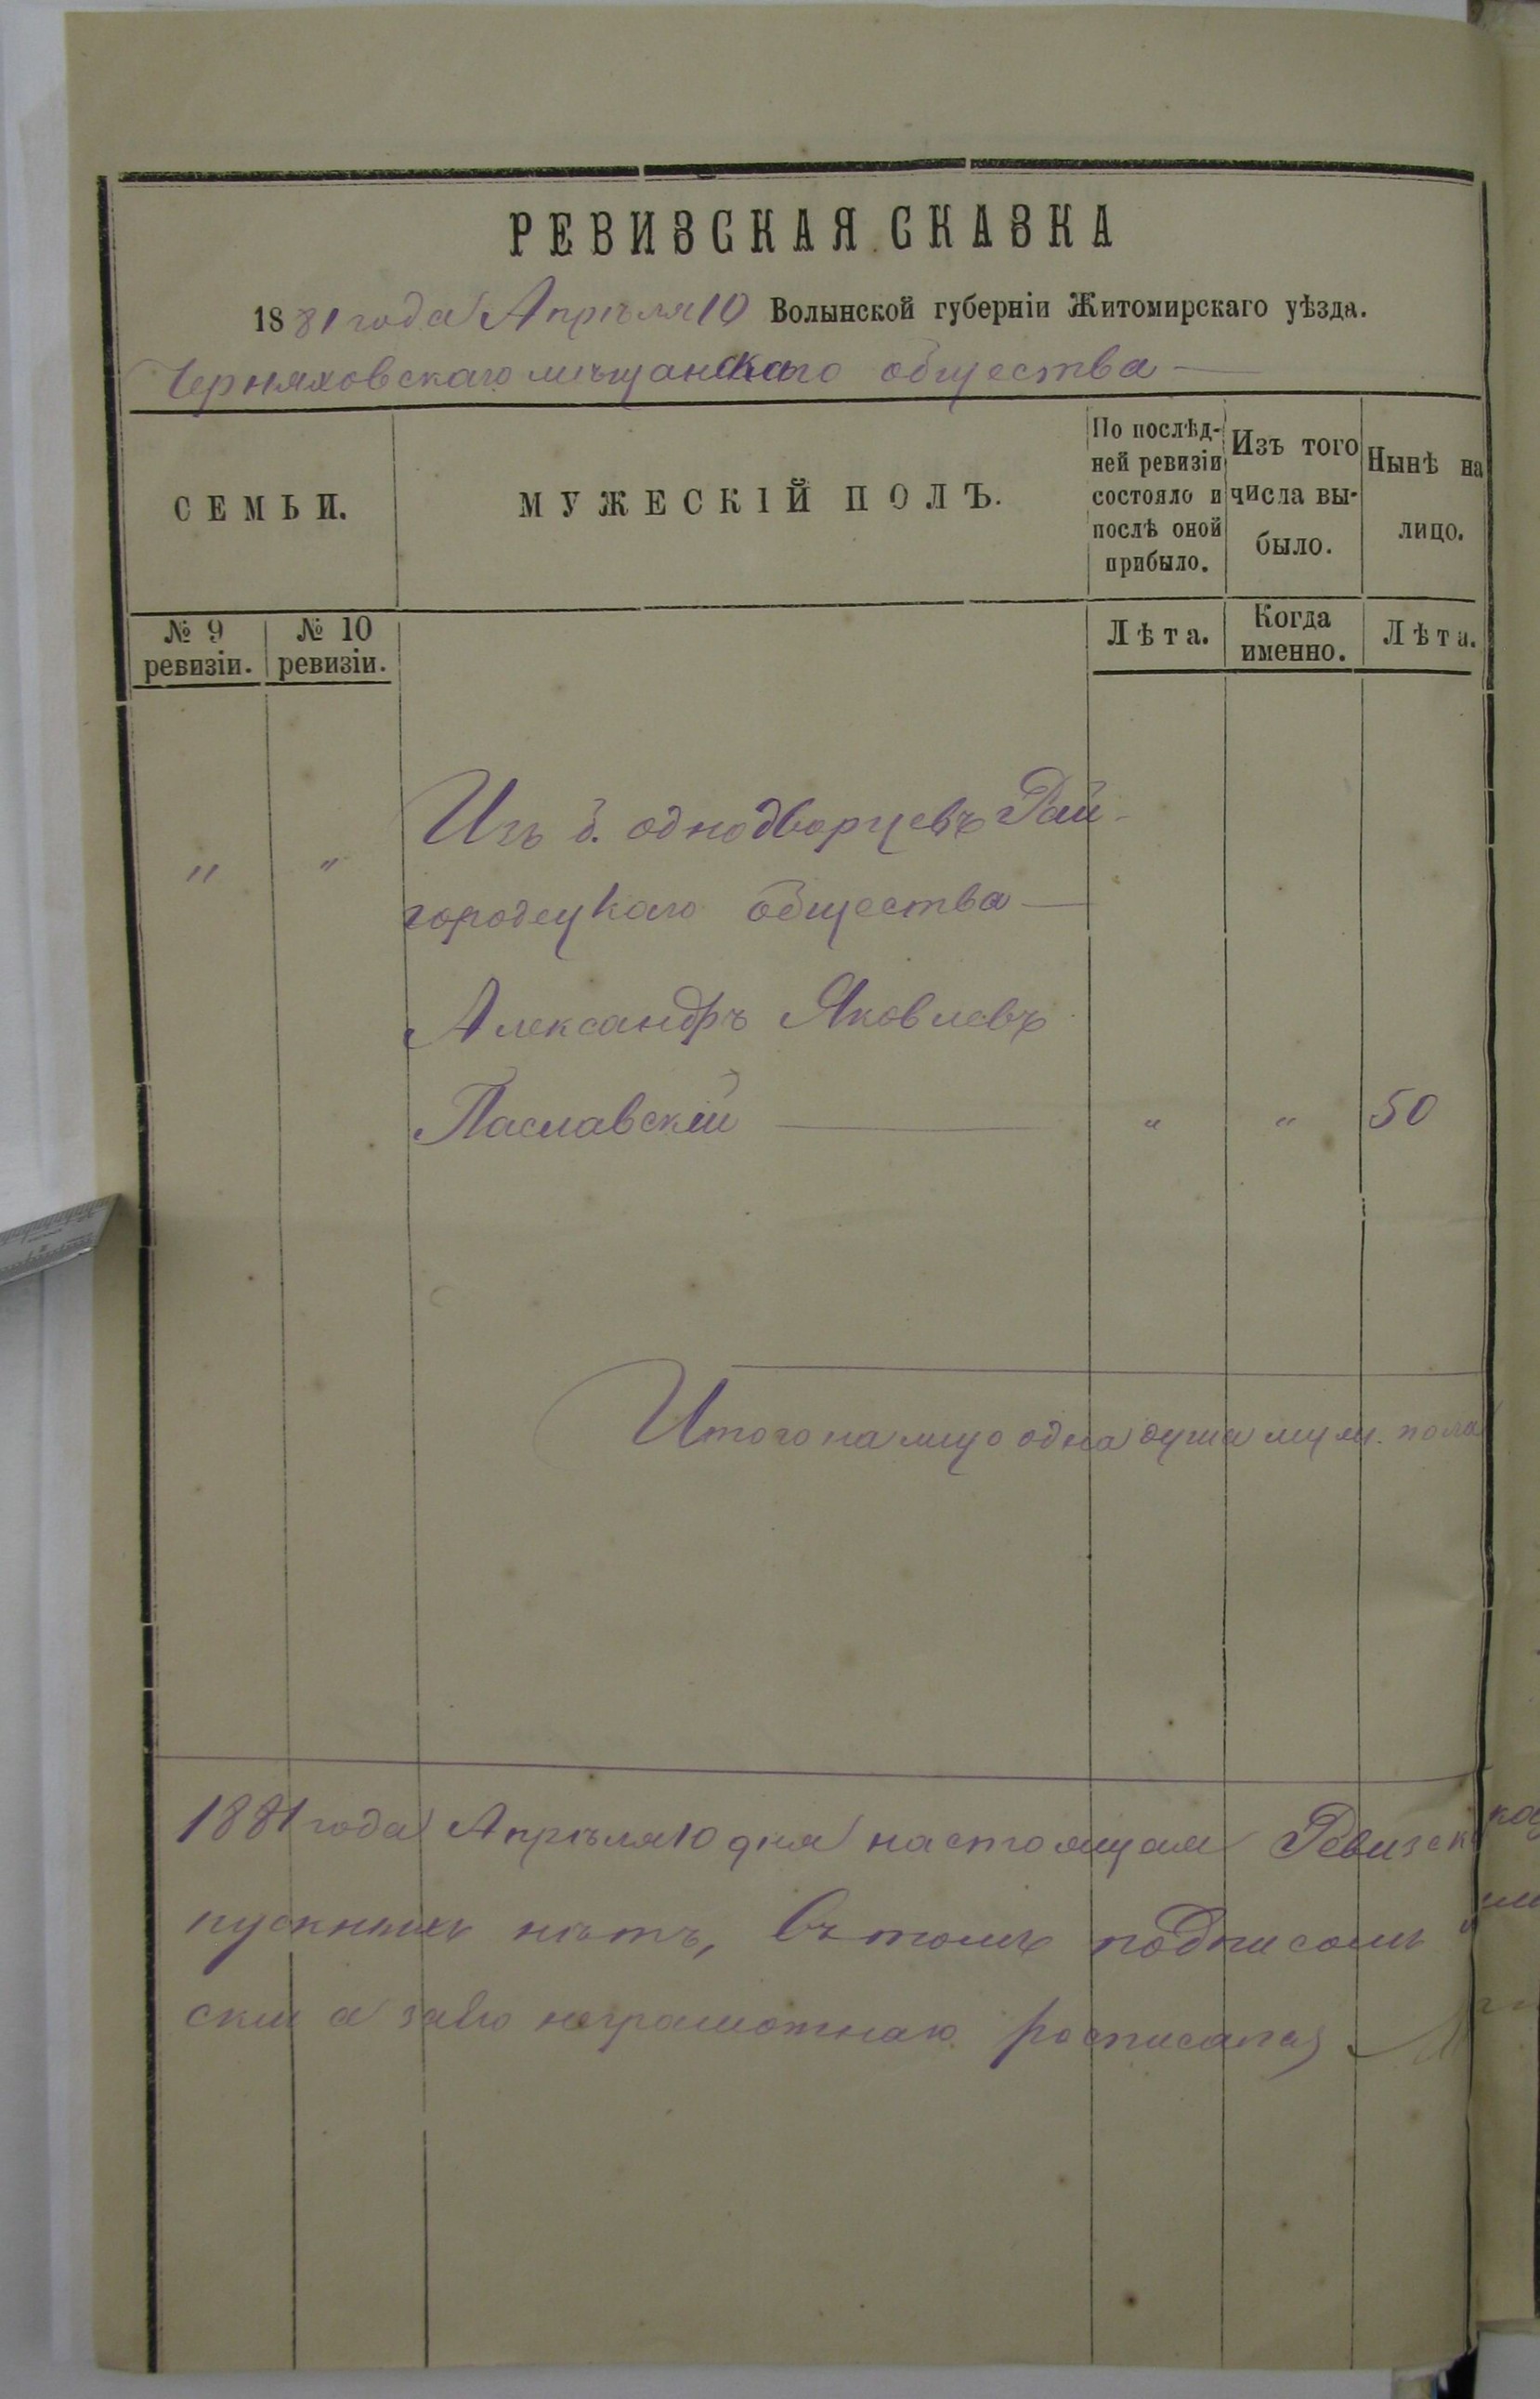 РЕВИЗСКАЯ СКАЗКА
1881 года Апрѣля 10 Волынской губерніи Житомирскаго уѣзда.
Черняховскаго мѣщанскаго общества —
СЕМЬИ.
МУЖЕСКІЙ ПОЛЪ.
По послѣд-
ней ревизіи
состояло и
послѣ оной
прибыло.
Изъ того
числа вы-
было.
Нынѣ на
лицо.
№ 9
ревизіи.
№ 10
ревизіи.
Лѣта.
Когда
именно.
Лѣта.
" " Изъ б. однодворцевъ Рай-
городецкаго общества —
Александръ Яковлевъ
Паславскій — " " 50
Итого на лицо одна душа муж. пола
1881 года Апрѣля 10 дня настоящая Ревизск
пускныхъ нѣтъ, въ томъ подписомъ
скій а за его неграмотнаго росписался